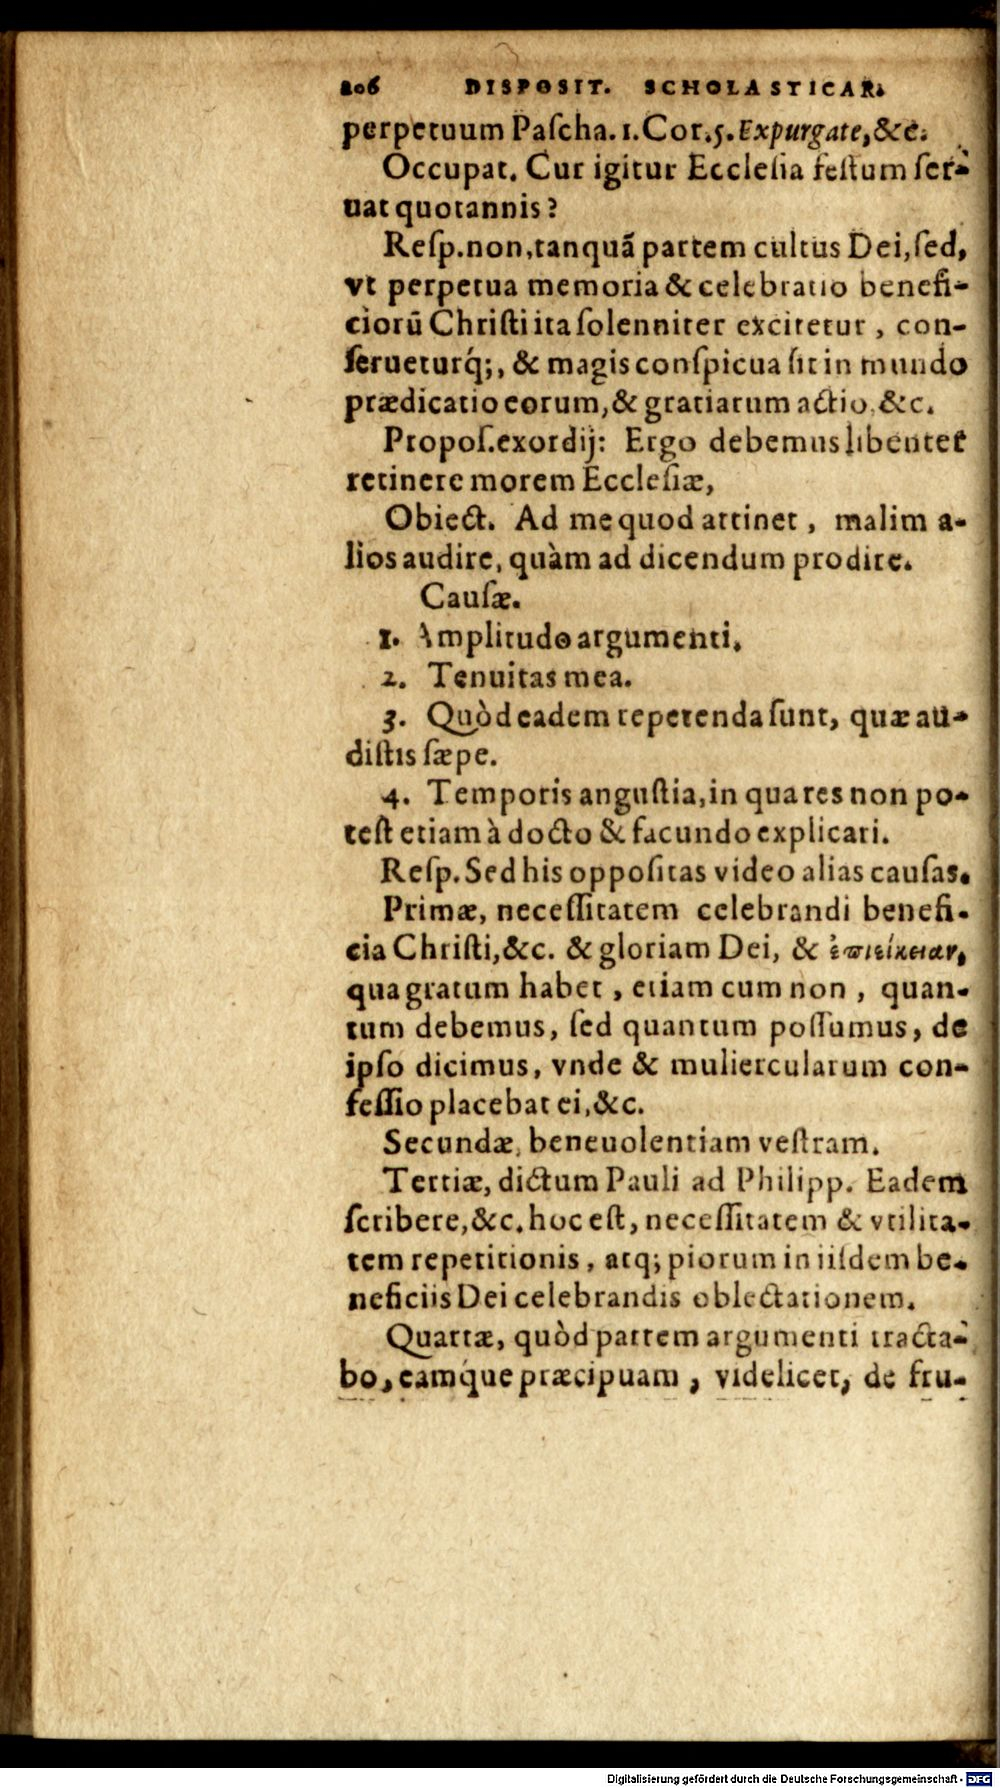 206 DISPOSIT. SCHOLASTICAR.
perpetuum Paſcha. 1. Cor. 5. Expurgate, &c.
Occupat. Cur igitur Eccleſia feſtum ſer-
uat quotannis?
Reſp. non, tanquã partem cultus Dei, ſed,
vt perpetua memoria & celebratio benefi-
ciorũ Chriſti ita ſolenniter excitetur, con-
ſerueturq́;, & magis conſpicua ſit in mundo
prædicatio eorum, & gratiarum actio, &c.
Propoſ. exordij: Ergo debemus libenter
retinere morem Eccleſiæ,
Obiect. Ad me quod attinet, malim a-
lios audire, quàm ad dicendum prodire.
Cauſæ.
1. Amplitudo argumenti.
2. Tenuitas mea.
3. Quòd eadem repetenda ſunt, quæ au-
diſtis ſæpe.
4. Temporis anguſtia, in qua res non po-
teſt etiam à docto & facundo explicari.
Reſp. Sed his oppoſitas video alias cauſas.
Primæ, neceſſitatem celebrandi benefi-
cia Chriſti, &c. & gloriam Dei, & ἐπιείκειαν,
qua gratum habet, etiam cum non, quan-
tum debemus, ſed quantum poſſumus, de
ipſo dicimus, vnde & muliercularum con-
feſſio placebat ei, &c.
Secundæ, beneuolentiam veſtram.
Tertiæ, dictum Pauli ad Philipp. Eadem
ſcribere, &c. hoc eſt, neceſſitatem & vtilita-
tem repetitionis, atq; piorum in iiſdem be-
neficiis Dei celebrandis oblectationem.
Quartæ, quòd partem argumenti tracta-
bo, eamq́ue præcipuam, videlicet, de fru-
Digitalisierung gefördert durch die Deutsche Forschungsgemeinschaft - DFG